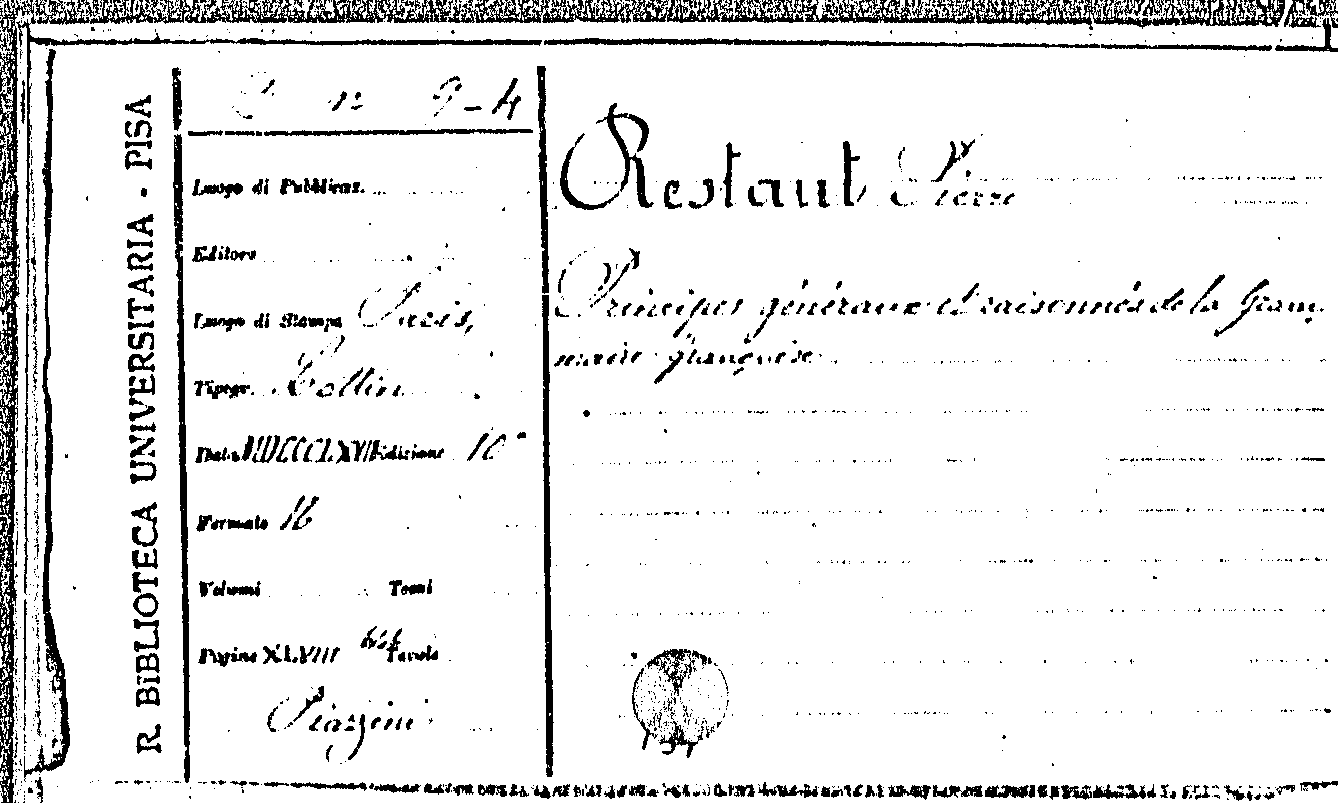 R. BIBLIOTECA UNIVERSITARIA - PISA
9-4
Luogo di Pubblicaz.
Editore
Luogo di Stampa Paris,
Tipogr. Lottin
Data MDCCLXVII Edizione 10ª
Formato 16
Volumi Tomi
Pagine XLVIII Tavole
Piazzini
Restaut Pierre
Principes généraux et raisonnés de la Gram
maire françoise.